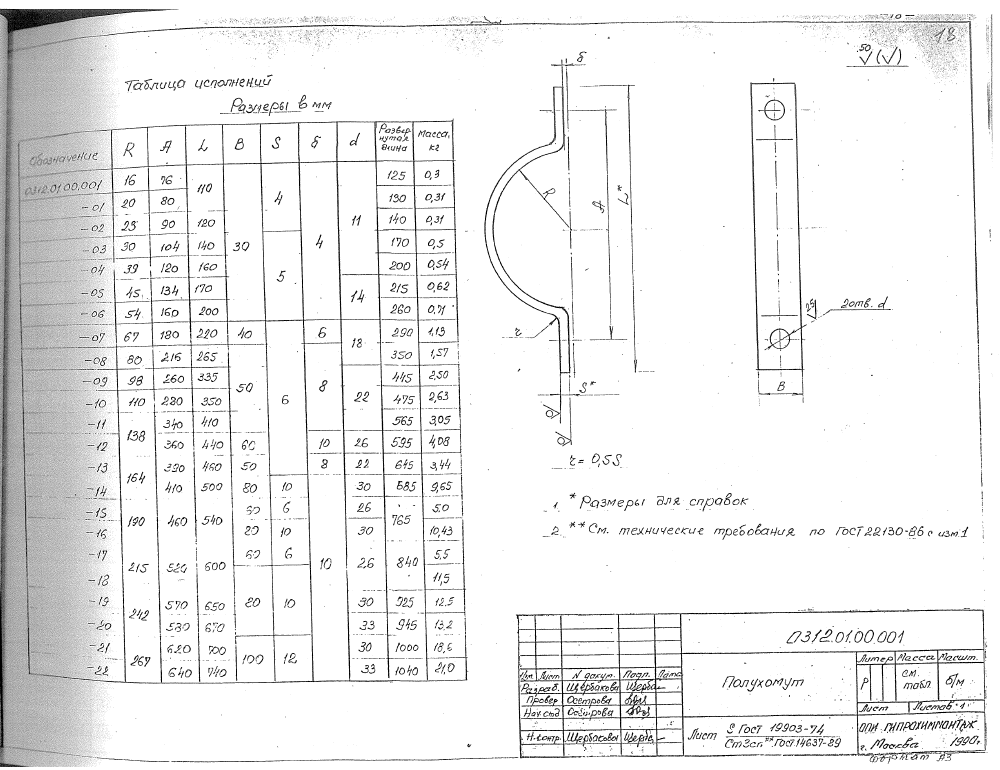 18
50 √(√)
Таблица исполнений
Размеры в мм
Обозначение R A L B S δ d Развернутая длина Масса, кг
0312.01.00.001 16 76 110 30 4 4 11 125 0,3
-01 20 80 130 0,31
-02 25 90 120 140 0,31
-03 30 104 140 5 170 0,5
-04 39 120 160 200 0,54
-05 45 134 170 14 215 0,62
-06 54 160 200 260 0,71
-07 67 180 220 40 6 6 18 290 1,13
-08 80 216 265 50 8 350 1,57
-09 98 260 335 22 445 2,50
-10 110 280 350 475 2,63
-11 138 340 410 565 3,05
-12 360 440 60 10 26 595 4,08
-13 164 390 460 50 8 22 645 3,44
-14 410 500 80 10 10 30 685 9,65
-15 190 460 540 60 6 26 765 5,0
-16 80 10 30 10,43
-17 215 520 600 60 6 26 840 5,5
-18 80 10 11,5
-19 242 570 650 30 925 12,5
-20 580 670 33 945 13,2
-21 267 620 700 100 12 30 1000 18,6
-22 640 740 33 1040 21,0
δ
R
A
L*
r
S*
r = 0,5S
25
2отв. d
B
1. * Размеры для справок
2. ** См. технические требования по ГОСТ 22130-86 с изм.1
0312.01.00.001
Полухомут
Литер Масса Масшт.
Р см. табл. б/м
Лист Листов 1
Изм Лист N докум. Подп. Дата
Разраб. Щербакова Щерба
Провер Осетрова
Нач. сод
Н.контр. Щербакова Щерба
Лист S ГОСТ 19903-74
Ст3сп** ГОСТ 14637-89
ГИПРОХИММОНТАЖ
г. Москва 1990г.
Формат А3